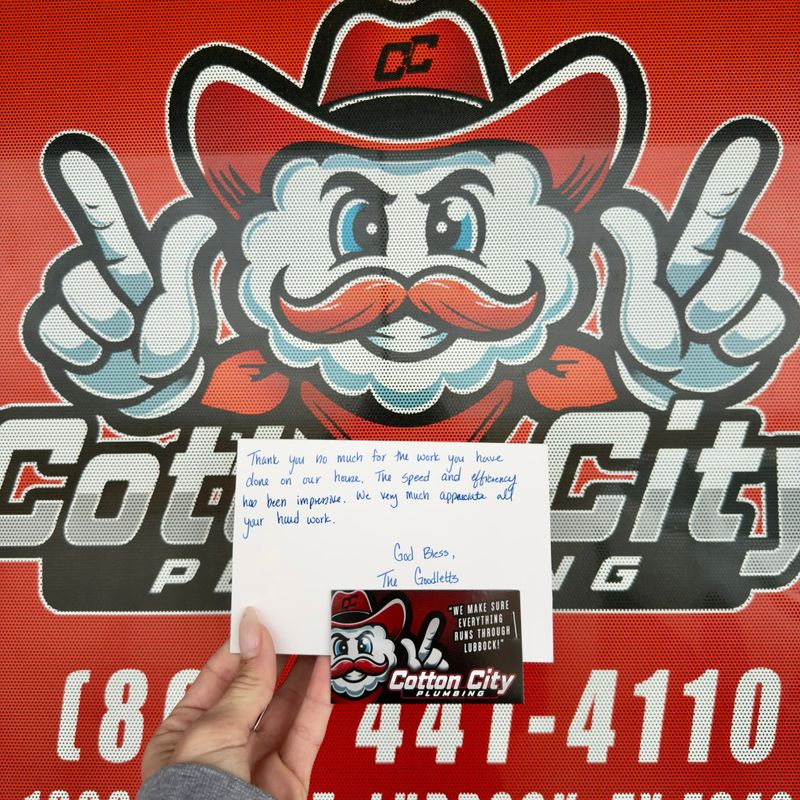 CC
Cotton City
Thank you so much for the work you have
done on our house. The speed and efficiency
has been impressive. We very much appreciate all
your hard work.
God Bless,
The Goodletts
CC
"WE MAKE SURE
EVERYTHING
RUNS THROUGH
LUBBOCK!"
Cotton City
PLUMBING
441-4110
LUBBOCK, TX